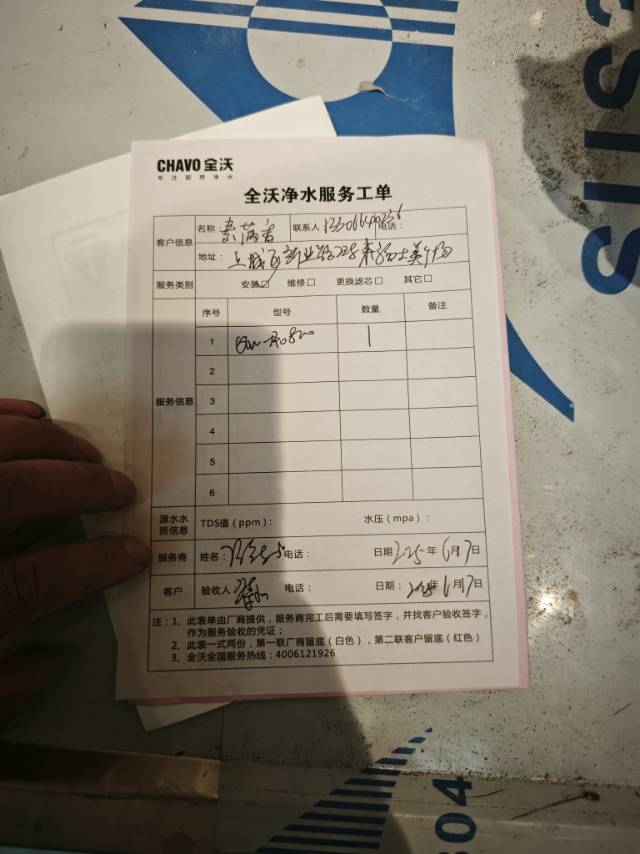 CHAVO 全沃
专注厨房净水
全沃净水服务工单
客户信息 名称: 联系人 电话:
地址:
服务类别 安装☑ 维修□ 更换滤芯□ 其它□
服务信息 序号 型号 数量 备注
1 1
2
3
4
5
6
源水水质信息 TDS值(ppm): 水压(mpa):
服务商 姓名: 电话: 日期 2025年6月17日
客户 验收人 电话: 日期: 2025年6月17日
注:1、此表单由厂商提供,服务商完工后需要填写签字,并找客户验收签字,
作为服务验收的凭证;
2、此表一式两份,第一联厂商留底(白色),第二联客户留底(红色)
3、全沃全国服务热线:4006121926